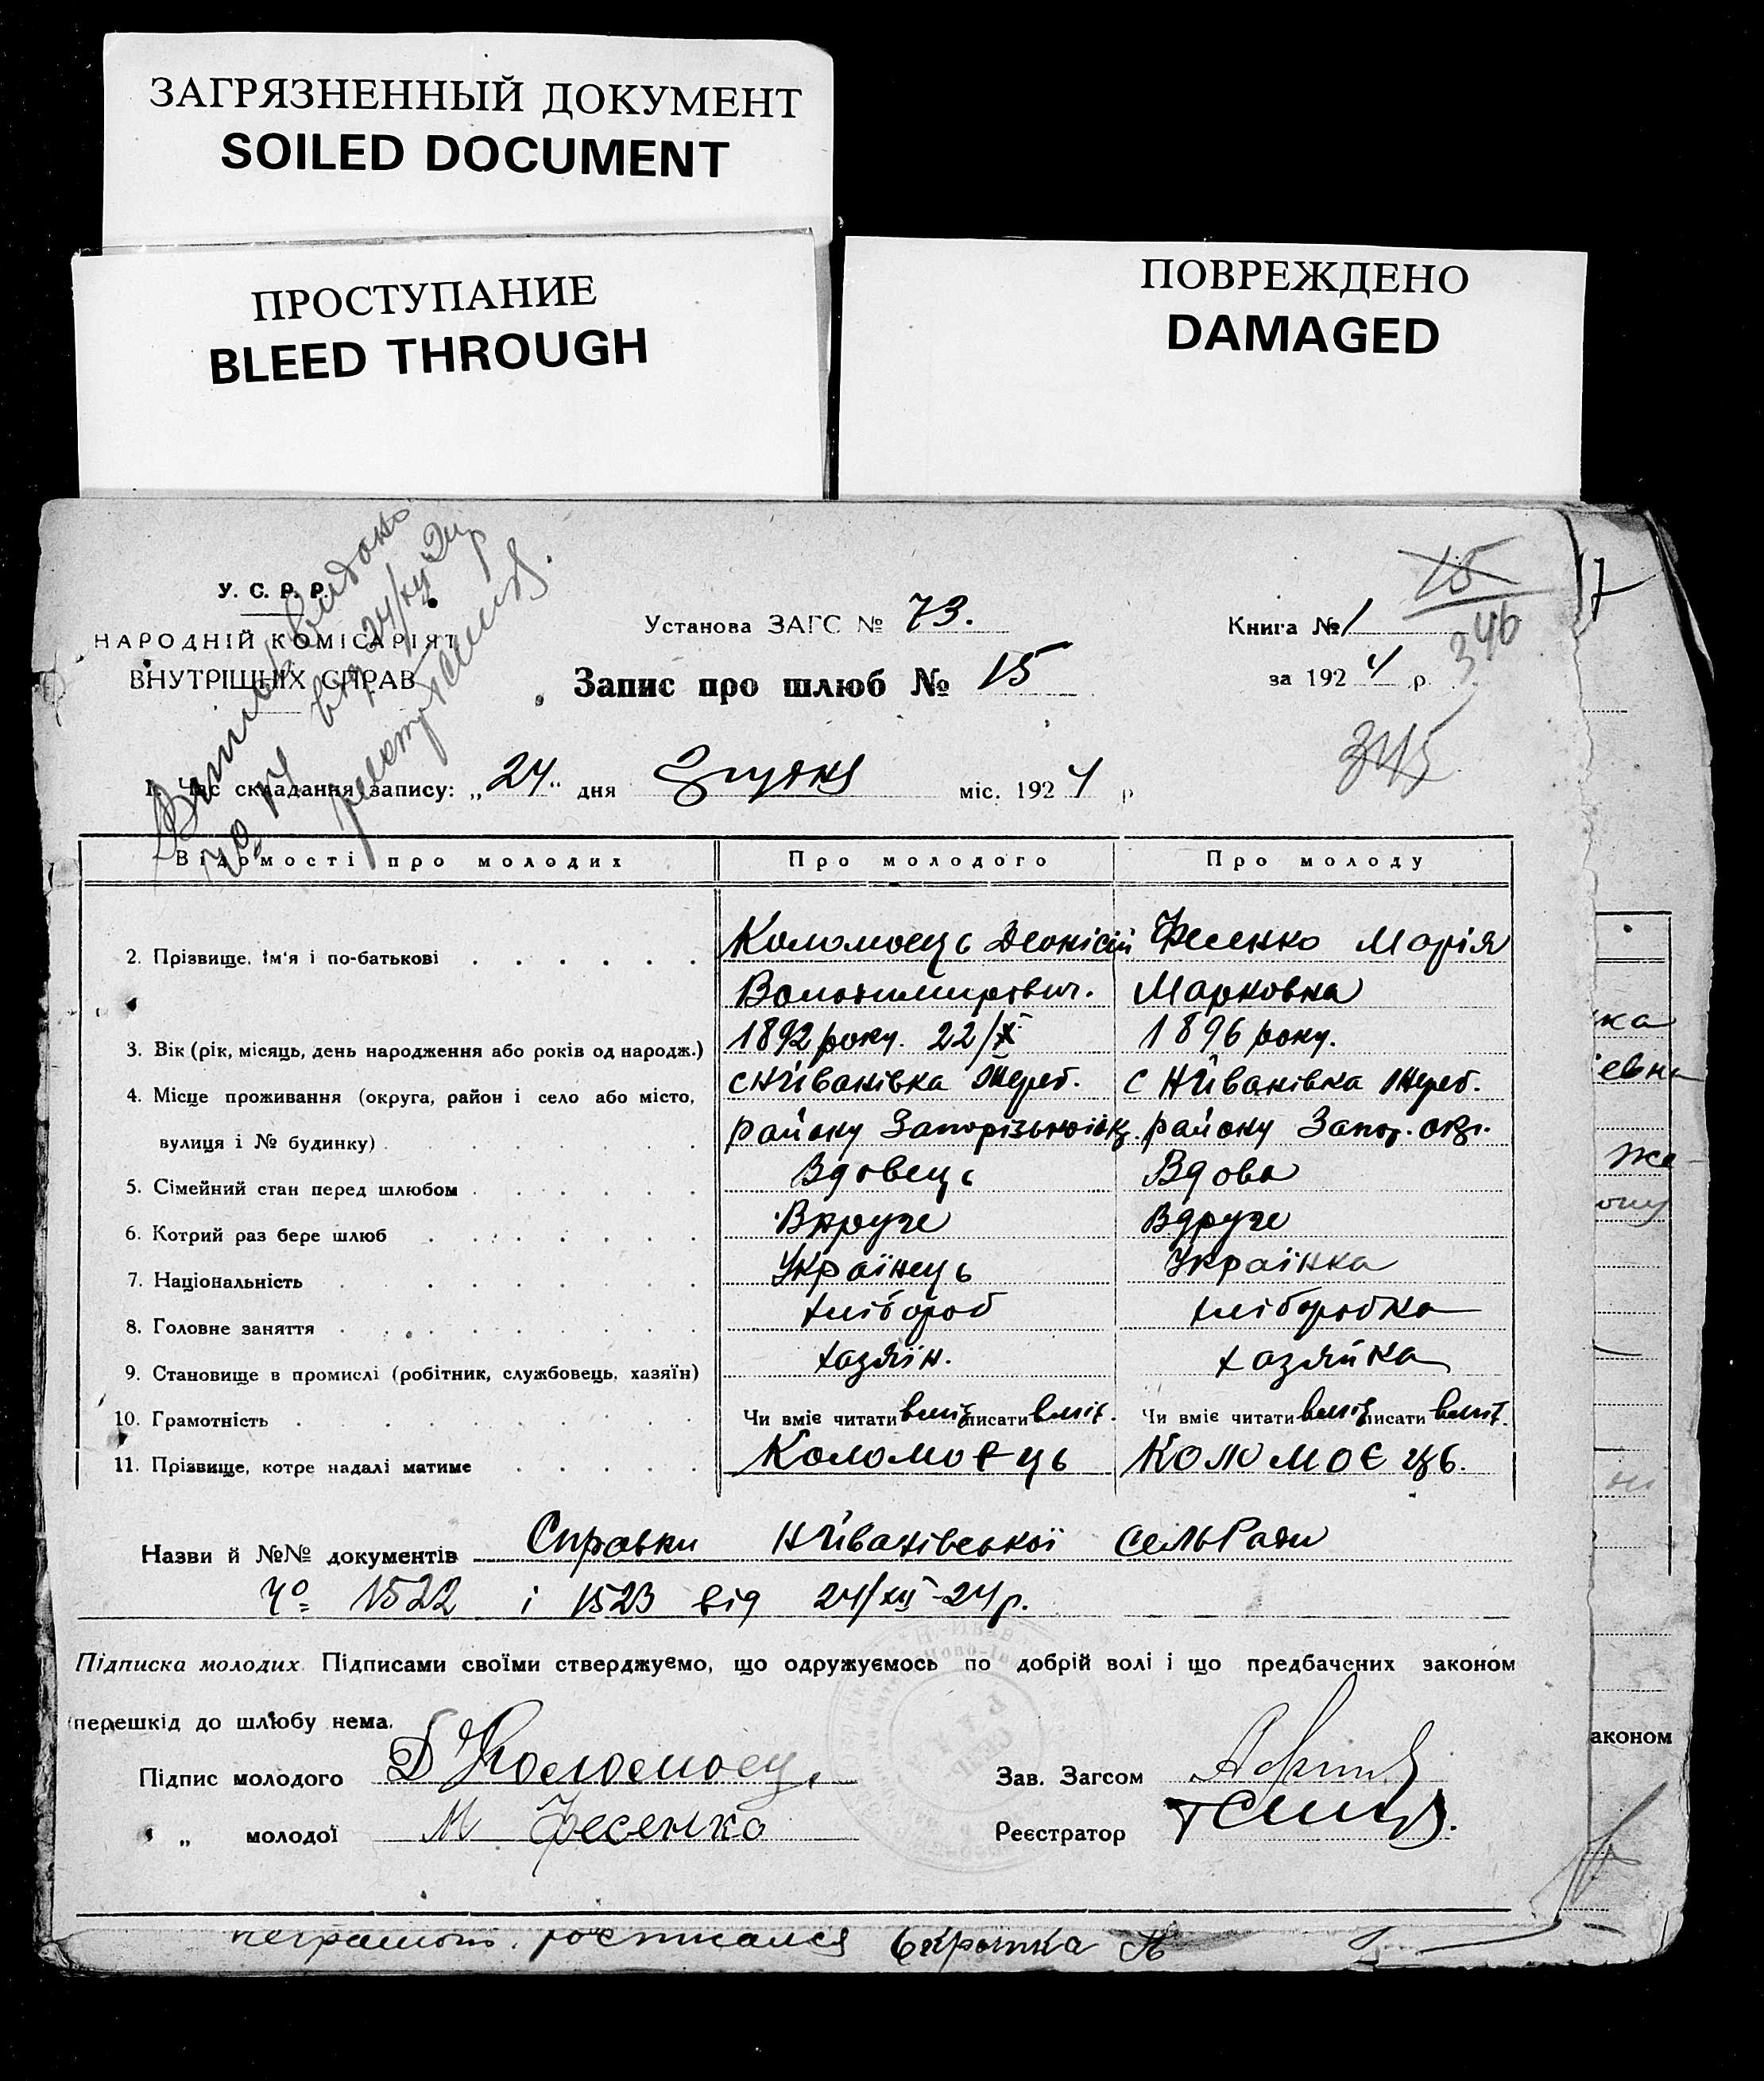 ЗАГРЯЗНЕННЫЙ ДОКУМЕНТ
SOILED DOCUMENT
ПРОСТУПАНИЕ
BLEED THROUGH
ПОВРЕЖДЕНО
DAMAGED
У. С. Р. Р.
НАРОДНІЙ КОМІСАРІЯТ
ВНУТРІШНІХ СПРАВ
Установа ЗАГС № 73.
Запис про шлюб № 15
Книга № 1
за 1924 р.
15
346
345
17
1. Час складання запису: „24" дня Грудня міс. 1924 р
Відомості про молодих Про молодого Про молоду
2. Прізвище, ім'я і по-батькові Коломоець Деонісій Фесенко Марія
Волотимирович. Марковна
3. Вік (рік, місяць, день народження або років од народж.) 1892 року. 22/X 1896 року.
4. Місце проживання (округа, район і село або місто, с Н Иванівка Жереб. с Н Иванівка Жереб.
вулиця і № будинку) району району Запор. окр.
5. Сімейний стан перед шлюбом Вдовець Вдова
6. Котрий раз бере шлюб Вдруге Вдруге
7. Національність Українець Українка
8. Головне заняття хлібороб хліборобка
9. Становище в промислі (робітник, службовець, хазяїн) хазяїн. хазяйка
10. Грамотність Чи вміє читати вміє писати вміє. Чи вміє читати вміє писати вміє.
11. Прізвище, котре надалі матиме Коломоєць Коломоєць.
Назви й №№ документів Справки Н Иванівської сельРади
№ 1522 і 1523 від 24/XII-24 р.
Підписка молодих. Підписами своїми стверджуємо, що одружуємось по добрій волі і що предбачених законом
перешкід до шлюбу нема.
Підпис молодого Д Коломоец
Зав. Загсом
„ молодої М Фесенко
Реєстратор
аконом